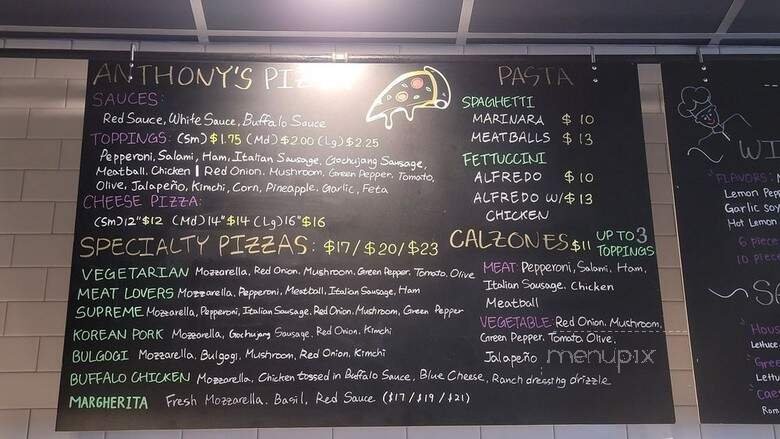 ANTHONY'S PIZZA
SAUCES:
Red Sauce, White Sauce, Buffalo Sauce
TOPPINGS: (Sm) $1.75 (Md) $2.00 (Lg) $2.25
Pepperoni, Salami, Ham, Italian Sausage, Gochujang Sausage,
Meatball, Chicken | Red Onion, Mushroom, Green Pepper, Tomato,
Olive, Jalapeño, Kimchi, Corn, Pineapple, Garlic, Feta
CHEESE PIZZA:
(Sm) 12" $12 (Md) 14" $14 (Lg) 16" $16
SPECIALTY PIZZAS: $17/$20/$23
VEGETARIAN Mozzarella, Red Onion, Mushroom, Green Pepper, Tomato, Olive
MEAT LOVERS Mozzarella, Pepperoni, Meatball, Italian Sausage, Ham
SUPREME Mozzarella, Pepperoni, Italian Sausage, Red Onion, Mushroom, Green Pepper
KOREAN PORK Mozzarella, Gochujang Sausage, Red Onion, Kimchi
BULGOGI Mozzarella, Bulgogi, Mushroom, Red Onion, Kimchi
BUFFALO CHICKEN Mozzarella, Chicken tossed in Buffalo Sauce, Blue Cheese, Ranch dressing drizzle
MARGHERITA Fresh Mozzarella, Basil, Red Sauce ($17/$19/$21)
PASTA
SPAGHETTI
MARINARA $10
MEATBALLS $13
FETTUCCINI
ALFREDO $10
ALFREDO W/ $13
CHICKEN
CALZONES $11 UP TO 3
TOPPINGS
MEAT: Pepperoni, Salami, Ham,
Italian Sausage, Chicken
Meatball
VEGETABLE: Red Onion, Mushroom,
Green Pepper, Tomato, Olive,
Jalapeño
menupix
WI
FLAVORS:
Lemon Pep
Garlic soy
Hot Lemon
6 piece
10 piec
SA
Hous
Lettuce
Gree
Lettu
Cae
Rom